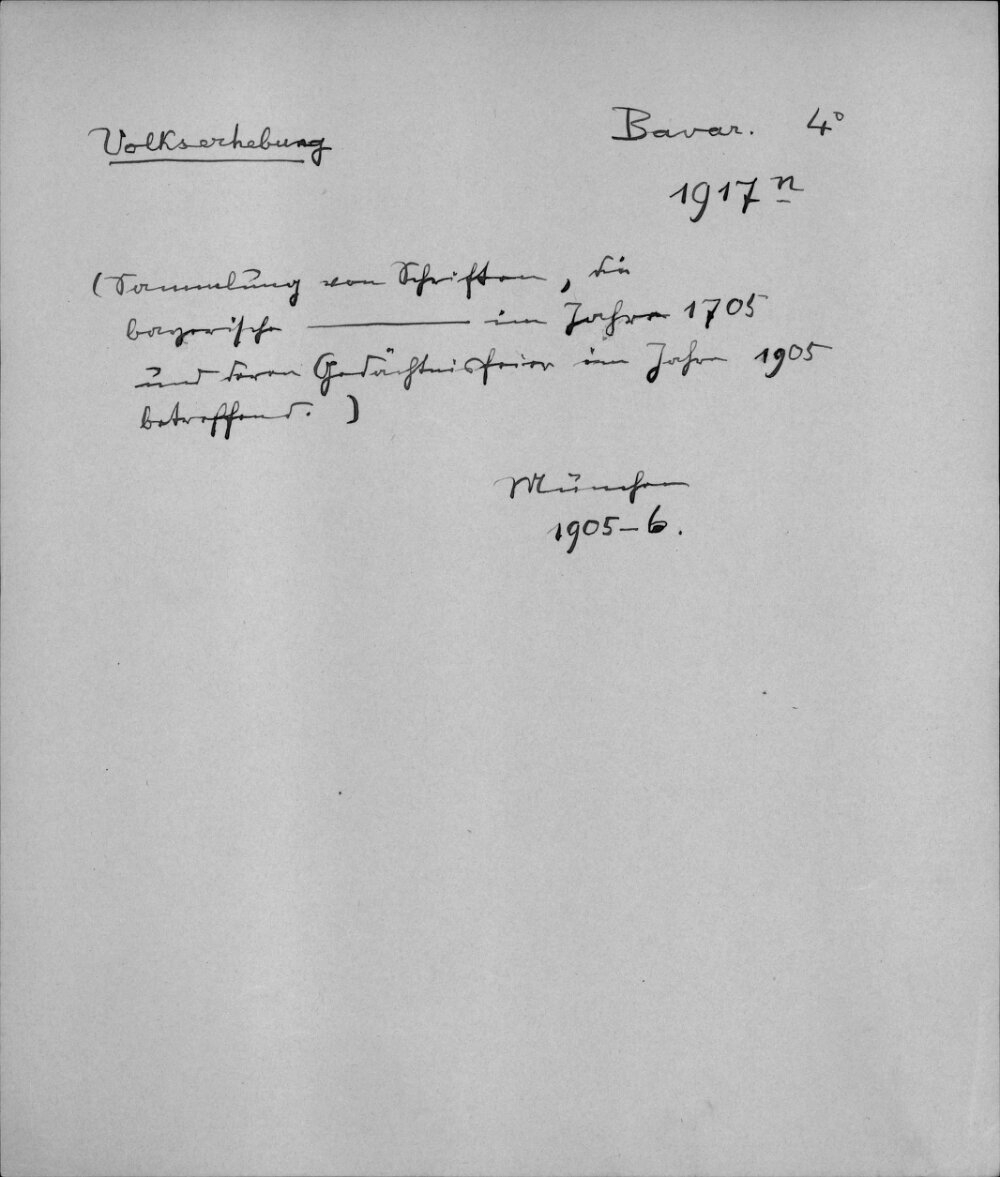 Volkserhebung
Bavar. 4°
1917 n
(Sammlung von Schriften, die
bayerische ——— im Jahre 1705
und deren Gedächtnisfeier im Jahre 1905
betreffend.)
München
1905–6.